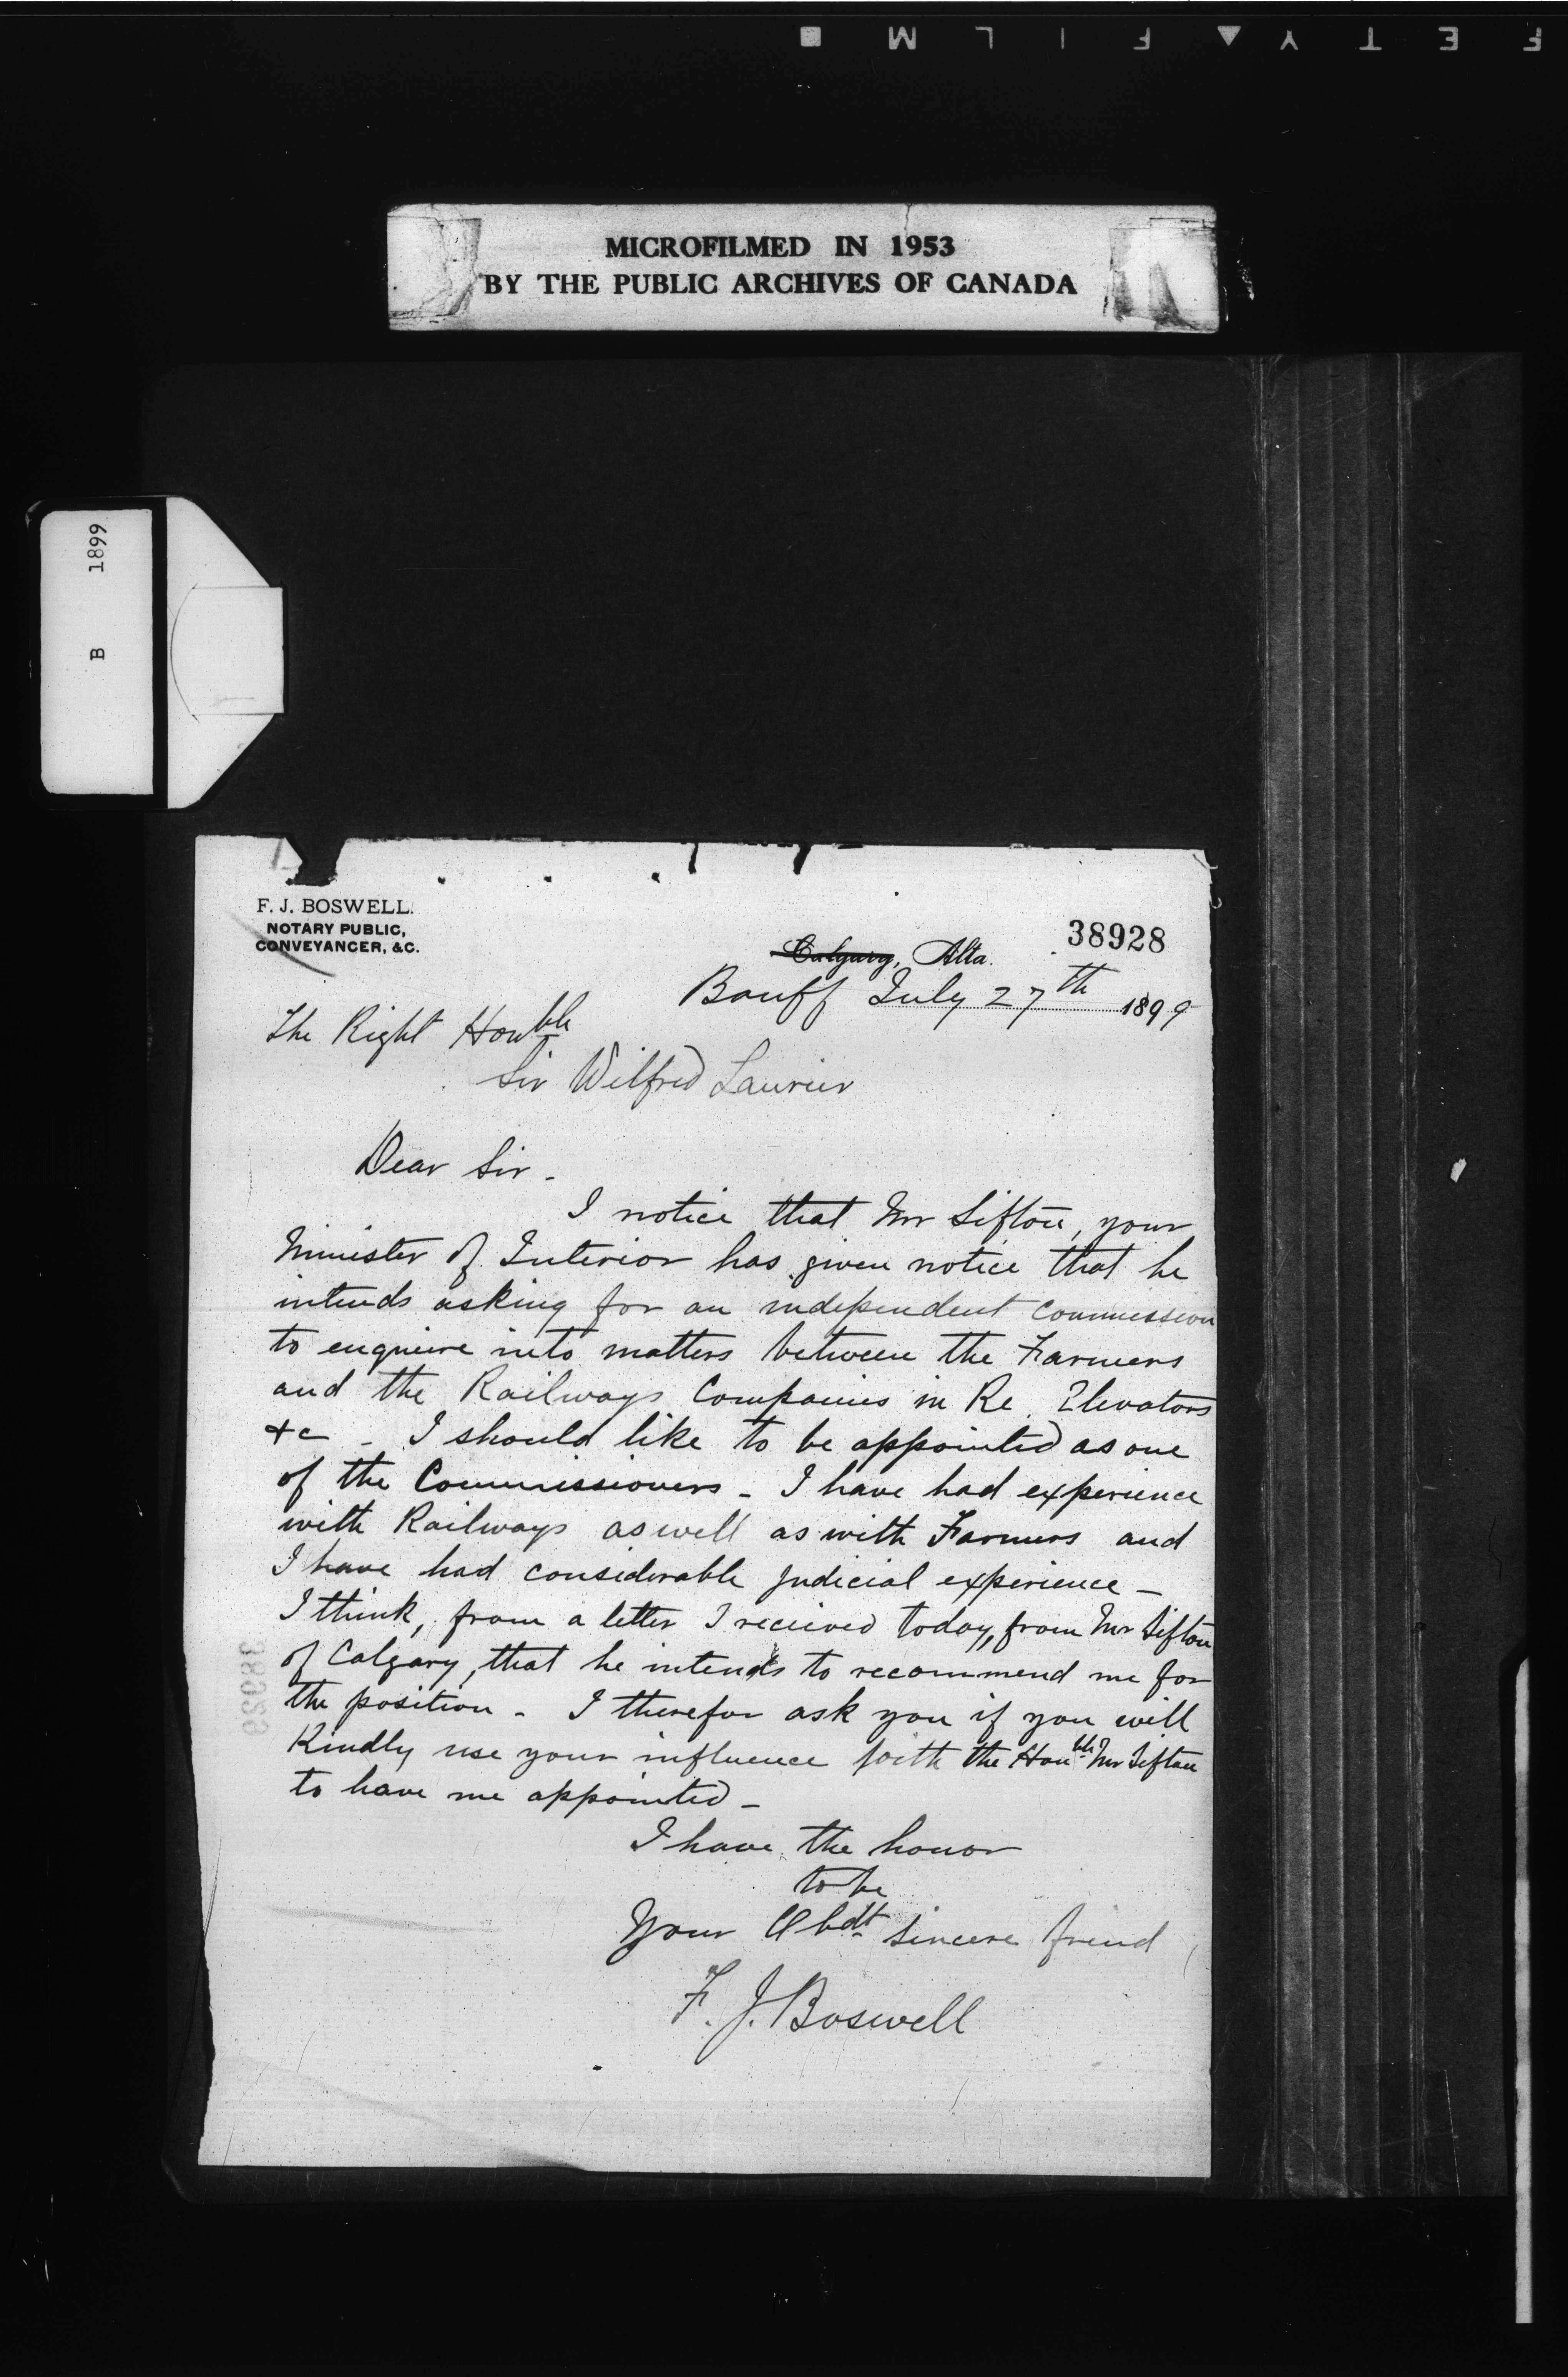 F E T Y ▲ F I L M ■
MICROFILMED IN 1953
BY THE PUBLIC ARCHIVES OF CANADA
B 1899
F. J. BOSWELL.
NOTARY PUBLIC,
CONVEYANCER, &C.
38928
Calgary, Alta.
Banff July 27th 1899
The Right Honble
Sir Wilfred Laurier
Dear Sir -
I notice that Mr Sifton, your
Minister of Interior has given notice that he
intends asking for an independent Commission
to enquire into matters between the Farmers
and the Railways Companies in Re. Elevators
&c - I should like to be appointed as one
of the Commissioners - I have had experience
with Railways as well as with Farmers and
I have had considerable judicial experience -
I think, from a letter I received today, from Mr Sifton
of Calgary, that he intends to recommend me for
the position - I therefor ask you if you will
Kindly use your influence with the Honble Mr Sifton
to have me appointed -
I have the honor
to be
Your Obdt sincere friend
F. J. Boswell
38929